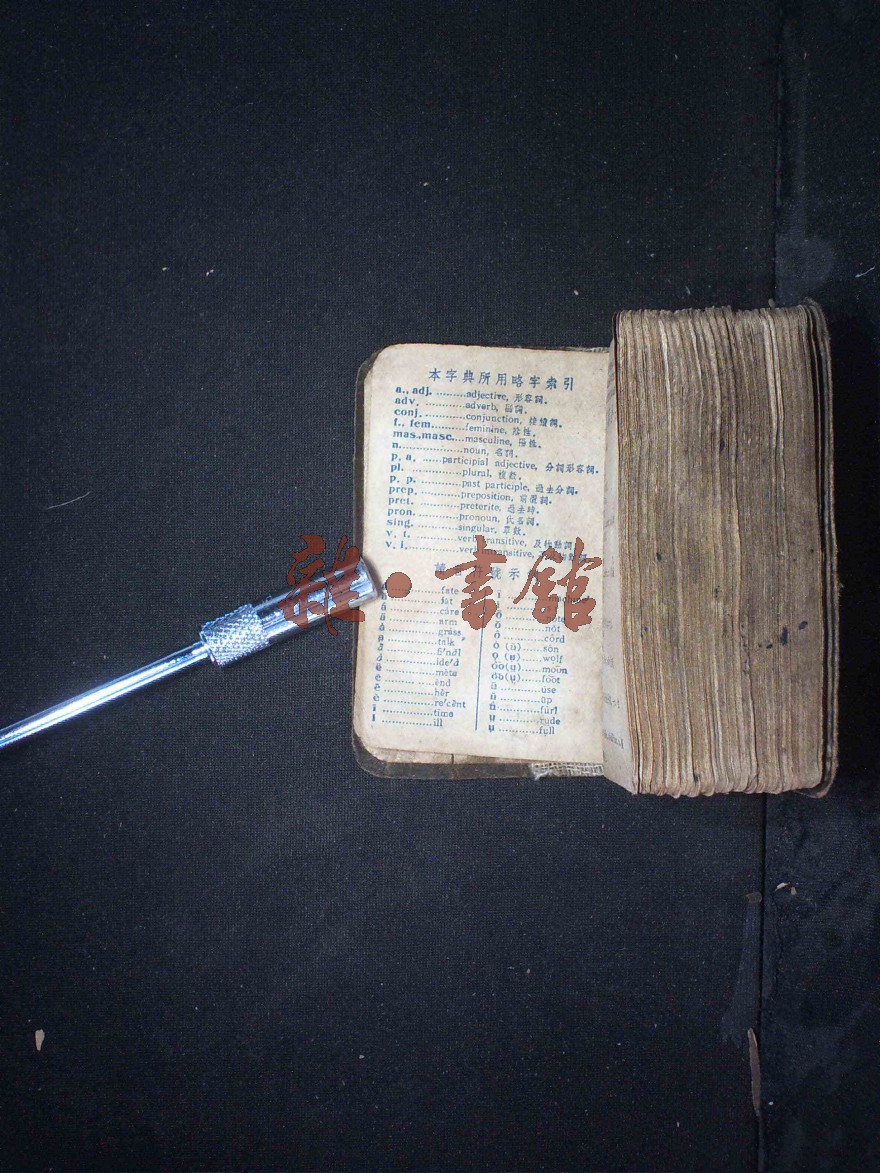 本字典所用略字索引
a., adj. .........adjective, 形容詞.
adv. ............adverb, 副詞.
conj. ............conjunction, 接續詞.
f., fem. .........feminine, 陰性.
mas.masc. ...masculine, 陽性.
n. ..................noun, 名詞.
p. a. ......participial adjective, 分詞形容詞.
pl. ...............plural, 複數.
p. p. ............past participle, 過去分詞.
prep. ............preposition, 前置詞.
pret. ............preterite, 過去時.
pron. ............pronoun, 代名詞.
sing. ............singular, 單數.
v. t. ............verb transitive, 及物動詞
v. i. ............verb
雜·書館
號示
fate
fat
câre
arm
grȧss
talk
fi'nāl
ide'ȧ
mēte
ĕnd
hẽr
re'cĕnt
tīme
ĭll
nŏt
côrd
son
wolf
mōōn
fŏŏt
ūse
ŭp
fûrl
rude
full